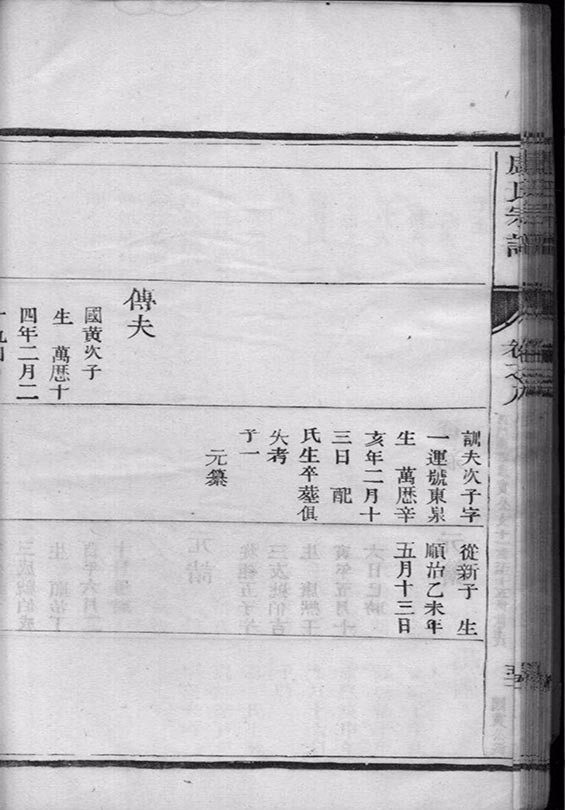 盧氏宗譜
卷之八
傳夫
國黃次子
生 萬曆十
四年二月二
訓夫次子字
一運號東泉
生 萬曆辛
亥年二月十
三日 配
氏生卒墓俱
失考
子一
元纂
從新子 生
順治乙未年
五月十三日